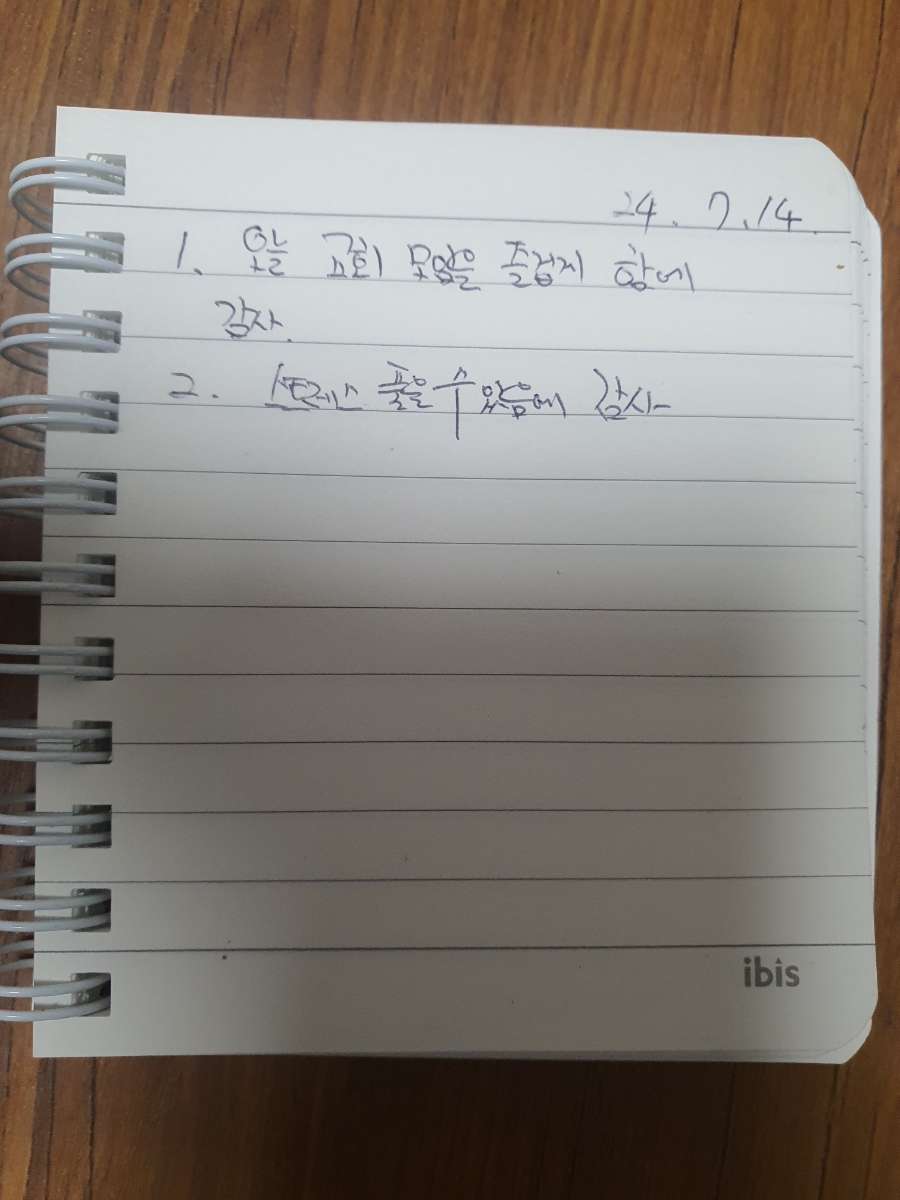 24. 7. 14.
1. 오늘 교회 모임을 즐겁게 함에
감사.
2. 스트레스 풀을 수 있음에 감사
ibis